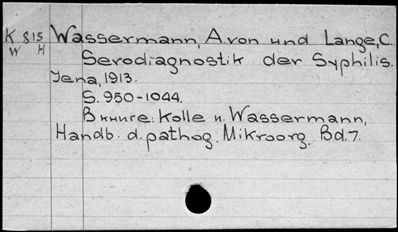 K 815 Wassermann, A von und Lange, C.
W H
Serodiagnostik der Syphilis.
Jena, 1913.
S. 950-1044.
В книге: Kolle и. Wassermann,
Handb. d. pathog. Mikroorg. Bd. 7.